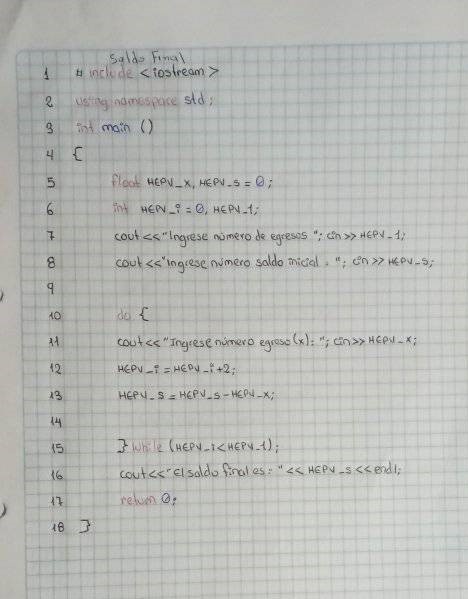 Saldo Final
1 # include <iostream>
2 using namespace std;
3 int main ()
4 {
5 float HEPV_x, HEPV_s = 0;
6 int HEPV_i = 0, HEPV_1;
7 cout<<"Ingrese número de egresos "; cin>> HEPV_1;
8 cout<<"Ingrese número saldo inicial : "; cin>> HEPV_s;
9
10 do {
11 cout<<"Ingrese número egreso (x): "; cin>> HEPV_x;
12 HEPV_i = HEPV_i+2;
13 HEPV_s = HEPV_s-HEPV_x;
14
15 } while (HEPV_i<HEPV_1);
16 cout<<"El saldo final es: "<< HEPV_s <<endl;
17 return 0;
18 }